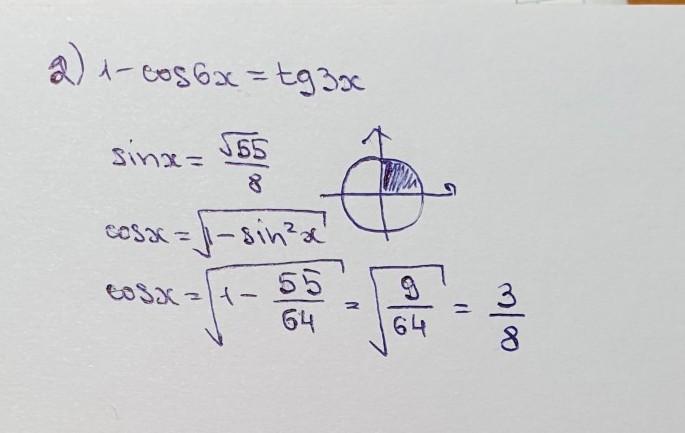 2) 1-cos6x=tg3x
sinx=√55/8
cosx=√1-sin²x
cosx=√1-55/64=√9/64=3/8